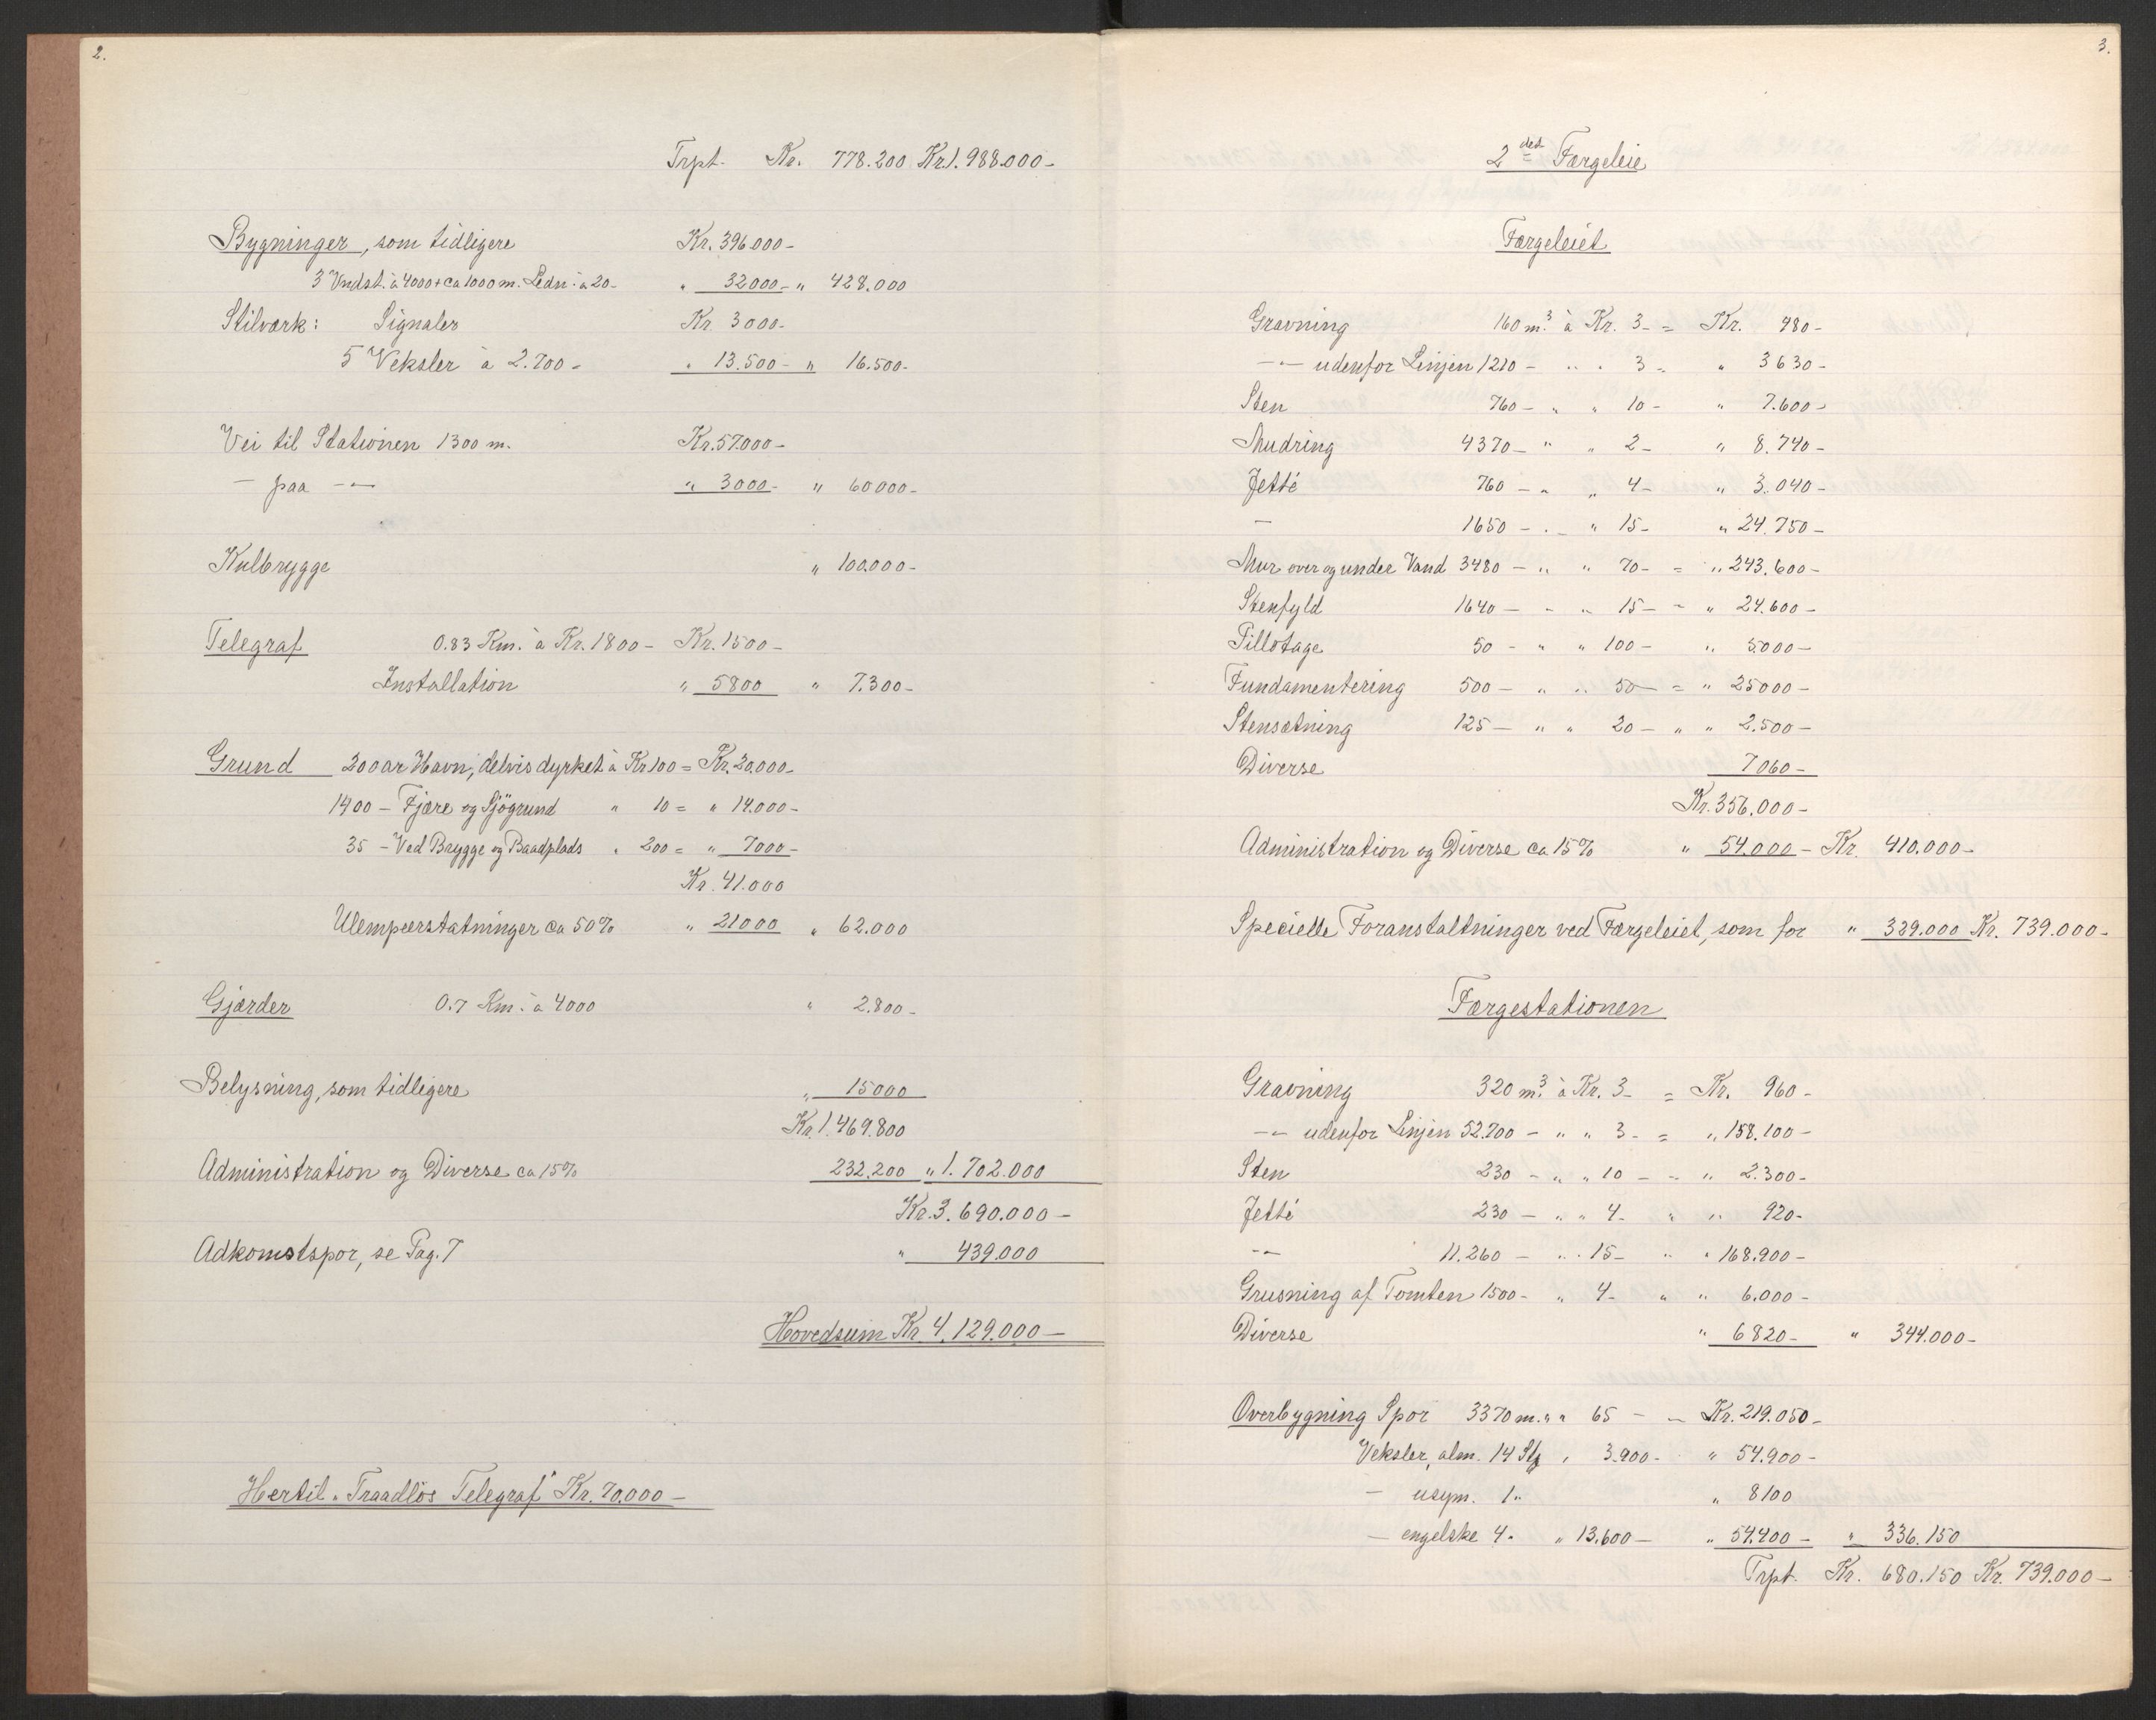 2.
Trpt. Kr. 778.200 Kr. 1.988.000 -
Bygninger, som tidligere Kr. 396.000 -
3 Vndst. à 4000 + ca 1000 m. Ledn. à 20 - " 32000 - " 428.000
Stilværk: Signaler Kr 3000 -
5 Veksler à 2.700 - " 13.500 - " 16.500 -
Vei til Stationen 1300 m. Kr. 57.000 -
— paa — " — " 3000 - " 60000 -
Kulbrygge " 100.000 -
Telegraf 0.83 Km. à Kr. 1800 - Kr. 1500 -
Installation " 5800 " 7.300 -
Grund 200 ar Havn, delvis dyrket à Kr 100 = Kr. 20.000 -
1400 - Fjære og Sjögrund " 10 = " 14.000 -
35 - Ved Brygge og Baadplads " 200 = " 7000 -
Kr. 41.000
Ulempeerstatninger ca 50% " 21000 " 62.000
Gjærder 0.7 Km. à 4000 " 2.800 -
Belysning, som tidligere " 15000
Kr. 1.469.800
Administration og Diverse ca 15% 232.200 " 1.702.000
Kr. 3.690.000 -
Adkomstspor, se Pag. 7 " 439.000
Hovedsum Kr. 4.129.000 -
Hertil „Traadlös Telegraf" Kr. 70.000 -
3.
2det Færgeleie
Færgeleiet
Gravning 160 m.³ à Kr. 3 - = Kr. 480 -
— " — udenfor Linjen 1210 - " " 3 - " 3630 -
Sten 760 - " " 10 - " 7.600 -
Mudring 4370 - " " 2 - " 8.740 -
Jetté 760 - " " 4 - " 3.040 -
— 1650 - " " 15 - " 24.750 -
Mur over og under Vand 3480 - " " 70 - = " 243.600 -
Stenfyld 1640 - " " 15 - " " 24.600 -
Pillotage 50 - " " 100 - " 5.000 -
Fundamentering 500 - " " 50 - = " 25000 -
Stensætning 125 - " " 20 - " " 2.500 -
Diverse 7060 -
Kr. 356.000 -
Administration og Diverse ca 15% " 54.000 - Kr. 410.000 -
Specielle Foranstaltninger ved Færgeleiet, som før " 329.000 Kr. 739.000 -
Færgestationen
Gravning 320 m.³ à Kr. 3 - = Kr. 960 -
— " — udenfor Linjen 52.700 - " " 3 - = " 158.100 -
Sten 230 - " " 10 - - " 2.300 -
Jetté 230 - " " 4 - " " 920 -
— " — 11.260 - " " 15 - " " 168.900 -
Grusning af Tomten 1500 - " 4 - " " 6.000 -
Diverse " 6820 - " 344.000 -
Overbygning Spor 3370 m. " " 65 - - Kr. 219.050 -
Veksler, alm. 14 Stk " 3.900 - " 54.900 -
— usym. 1 " " 8100
— engelske 4 " " 13.600 - " 54.400 - " 336.150
Trpt. Kr. 680.150 Kr. 739.000 -